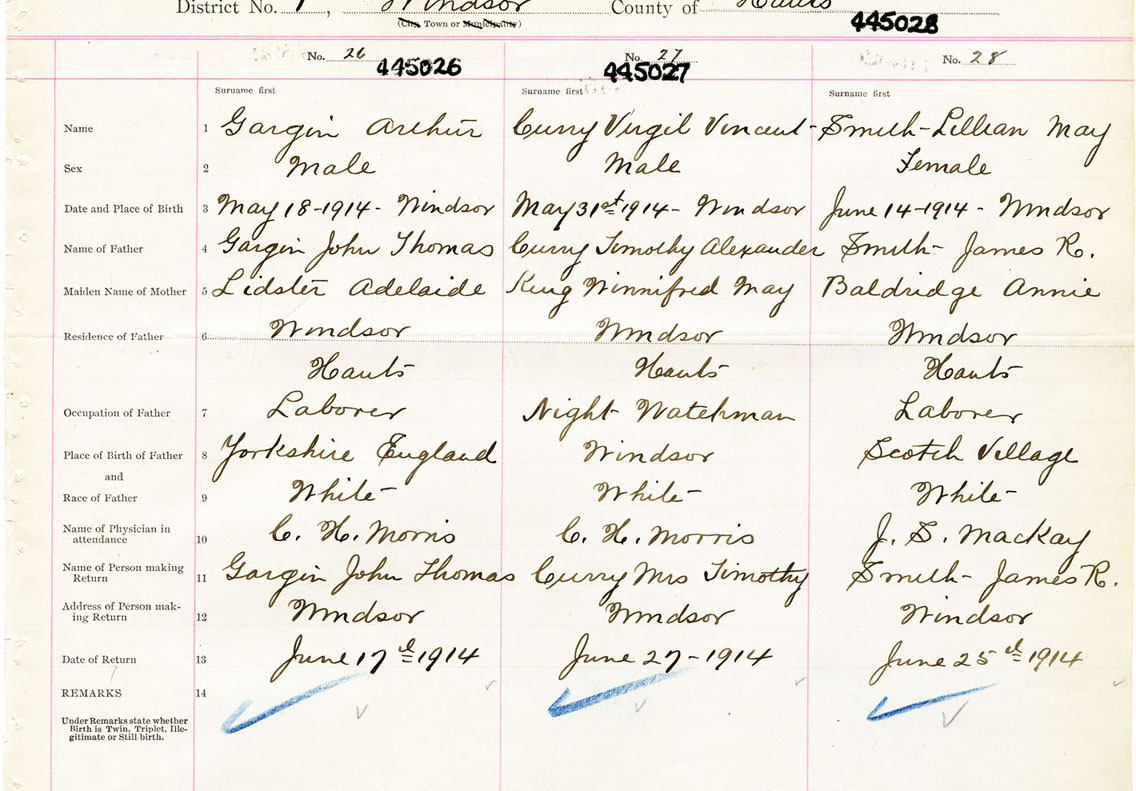 District No. 1, Windsor County of Hants
(City, Town or Municipality)
445028
No. 26 No. 27 No. 28
445026 445027
Surname first Surname first Surname first
Name 1 Gargin Arthur Curry Virgil Vincent- Smith-Lillian May
Sex 2 Male Male Female
Date and Place of Birth 3 May 18-1914- Windsor May 31st 1914- Windsor June 14-1914- Windsor
Name of Father 4 Gargin John Thomas Curry Timothy Alexander Smith- James R.
Maiden Name of Mother 5 Lidster Adelaide King Winnifred May Baldridge Annie
Residence of Father 6 Windsor Windsor Windsor
Hants Hants Hants
Occupation of Father 7 Laborer Night Watchman Laborer
Place of Birth of Father 8 Yorkshire England Windsor Scotch Village
and
Race of Father 9 White White White
Name of Physician in
attendance 10 C. H. Morris C. H. Morris J. S. Mackay
Name of Person making
Return 11 Gargin John Thomas Curry Mrs Timothy Smith- James R.
Address of Person mak-
ing Return 12 Windsor Windsor Windsor
Date of Return 13 June 17th 1914 June 27-1914 June 25th 1914
REMARKS 14
Under Remarks state whether
Birth is Twin, Triplet, Ille-
gitimate or Still-birth.